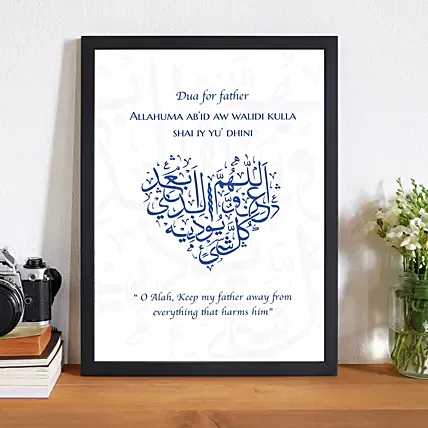 Dua for father
ALLAHUMA AB'ID AW WALIDI KULLA
SHAI IY YU' DHINI
اللّهُمَّ ابعد
عن والدي
كُلَّ شَيْئ يوذيه
“ O Alah, Keep my father away from
everything that harms him”